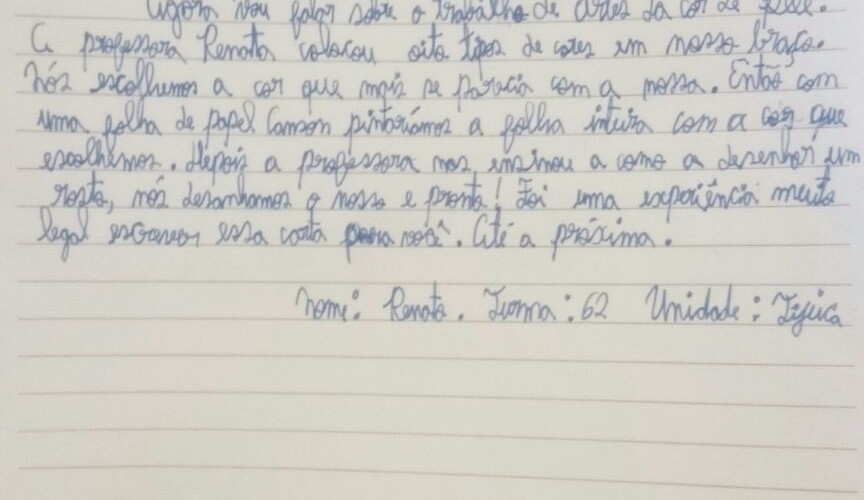 Agora vou falar sobre o trabalho de artes da cor de pele.
A professora Renata colocou oito tipos de cores em nosso braço.
Nós escolhemos a cor que mais se parecia com a nossa. Então com
uma folha de papel Canson pintaríamos a folha inteira com a cor que
escolhemos. Depois a professora nos ensinou a como a desenhar um
rosto, nós desenhamos o nosso e pronto! Foi uma experiência muito
legal escrever essa carta para você. Até a próxima!
Nome: Renato. Turma: 62 Unidade: Tijuca